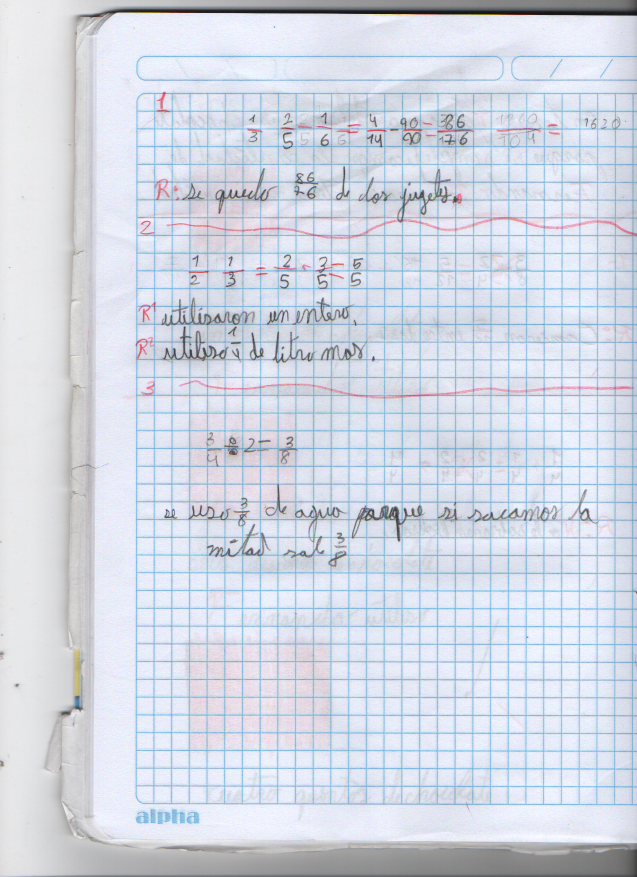 1
1/3 2/5 - 1/6 = 4/14 - 90/90 = 386/176 = 1620
R: se quedo 86/76 de dos jugetes.
2
1/2 1/3 = 2/5 - 3/5 = 5/5
R1 utilisaron un entero.
R2 utiliso 1/4 de litro mas.
3
3/4 ÷ 2 = 3/8
se uso 3/8 de agua parque si sacamos la
mitad sal 3/8
alpha